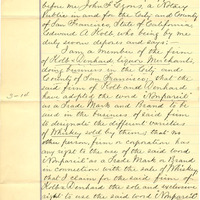 before me John F. Lyons, a Notary
Public in and for the City and County
of San Francisco, State of California,
Edward A. Kolb who being by me
duly sworn deposes and says:
I am a member of the firm
of Kolb & Denhard Liquor Merchants
doing business in the City and
County of San Francisco; that the
said firm of Kolb and Denhard
has adopted the word Nonpareil
as a Trade Mark and Brand to be
used in the business of said firm
to designate the different varieties
of Whiskey sold by them; that no
other person, firm or corporation has
any right to the use of the said word
Nonpareil as a Trade Mark or Brand
in connection with the sale of Whiskey
that I claim for the said firm of
Kolb & Denhard the sole and exclusive
right to use the said word Nonpareil